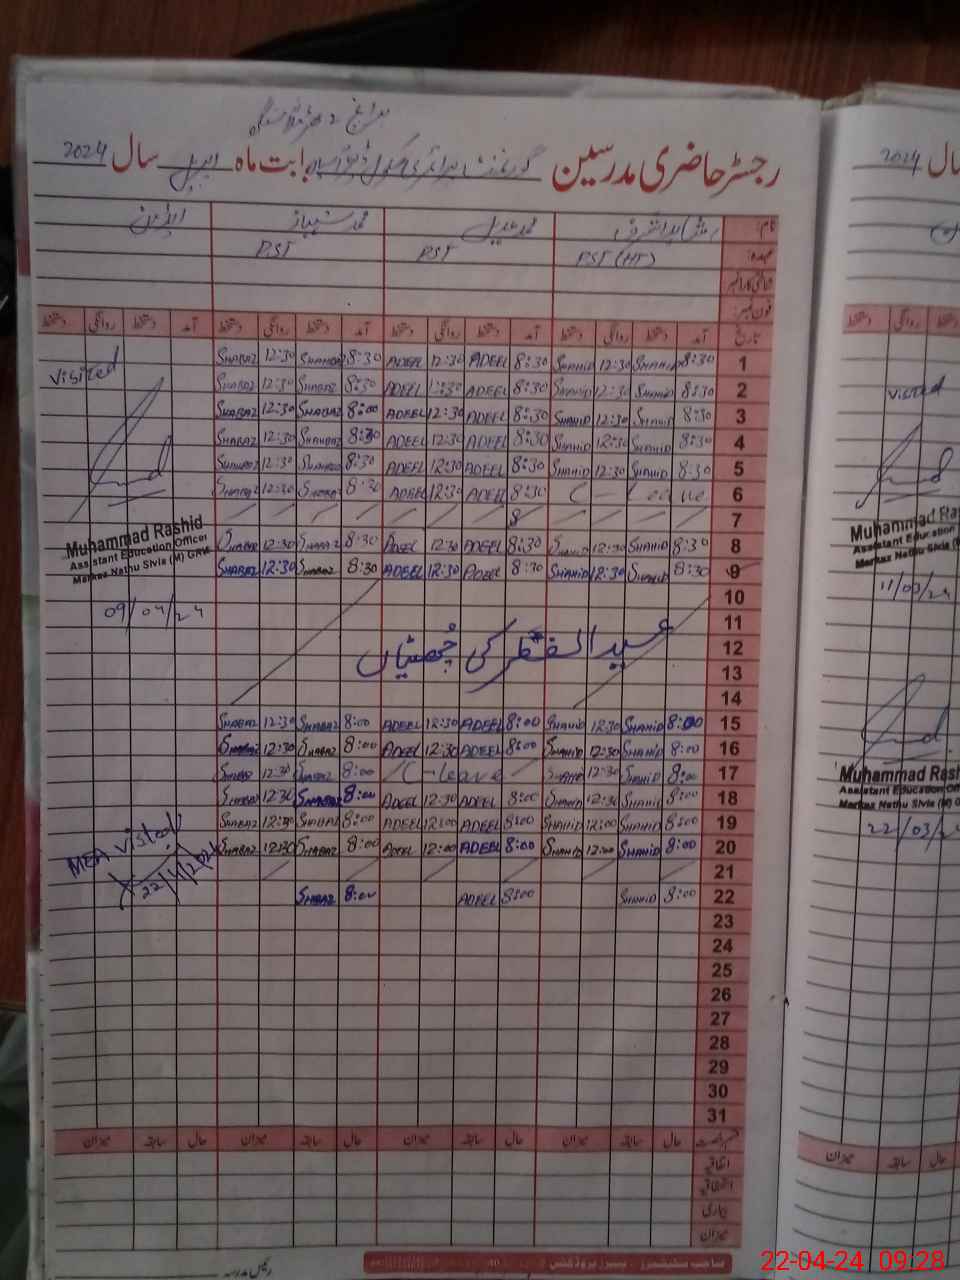 رجسٹر حاضری مدرسین گورنمنٹ پرائمری سکول بابت ماہ اپریل سال 2024
نام: شاہد اشرف محمد عدیل محمد شہباز
عہدہ: PST (HT) PST PST
شناختی کارڈ نمبر
فون نمبر:
تاریخ آمد دستخط روانگی دستخط آمد دستخط روانگی دستخط آمد دستخط روانگی دستخط آمد دستخط روانگی دستخط
SHABAZ 12:30 SHABAZ 8:30 ADEEL 12:30 ADEEL 8:30 SHAHID 12:30 SHAHID 8:30 1
visited
SHABAZ 12:30 SHABAZ 8:30 ADEEL 12:30 ADEEL 8:30 SHAHID 12:30 SHAHID 8:30 2
SHABAZ 12:30 SHABAZ 8:00 ADEEL 12:30 ADEEL 8:30 SHAHID 12:30 SHAHID 8:30 3
SHABAZ 12:30 SHABAZ 8:30 ADEEL 12:30 ADEEL 8:30 SHAHID 12:30 SHAHID 8:30 4
SHABAZ 12:30 SHABAZ 8:30 ADEEL 12:30 ADEEL 8:30 SHAHID 12:30 SHAHID 8:30 5
SHABAZ 12:30 SHABAZ 8:30 ADEEL 12:30 ADEEL 8:30 Leave 6
8 7
SHABAZ 12:30 SHABAZ 8:30 ADEEL 12:30 ADEEL 8:30 SHAHID 12:30 SHAHID 8:30 8
SHABAZ 12:30 SHABAZ 8:30 ADEEL 12:30 ADEEL 8:30 SHAHID 12:30 SHAHID 8:30 9
Muhammad Rashid
Assistant Education Officer
Markaz Nathu Sivia (M) GRW
09/04/24
10
11
عید الفطر کی چھٹیاں 12
13
14
SHABAZ 12:30 SHABAZ 8:00 ADEEL 12:30 ADEEL 8:00 SHAHID 12:30 SHAHID 8:00 15
SHABAZ 12:30 SHABAZ 8:00 ADEEL 12:30 ADEEL 8:00 SHAHID 12:30 SHAHID 8:00 16
SHABAZ 12:30 SHABAZ 8:00 Leave SHAHID 12:30 SHAHID 8:00 17
SHABAZ 12:30 SHABAZ 8:00 ADEEL 12:30 ADEEL 8:00 SHAHID 12:30 SHAHID 8:00 18
SHABAZ 12:30 SHABAZ 8:00 ADEEL 12:00 ADEEL 8:00 SHAHID 12:00 SHAHID 8:00 19
SHABAZ 12:30 SHABAZ 8:00 ADEEL 12:00 ADEEL 8:00 SHAHID 12:00 SHAHID 8:00 20
MEA visted
22/4/2024
21
SHABAZ 8:00 ADEEL 8:00 SHAHID 8:00 22
23
24
25
26
27
28
29
30
31
حال سابقہ میزان حال سابقہ میزان حال سابقہ میزان حال سابقہ میزان
اتفاقیہ
استحقاقیہ
بیماری
میزان
رئیس مدرسہ
سال 2024
دستخط روانگی دستخط
visited
Muhammad Ras
Assistant Education
Markaz Nathu Sivia (M)
11/03/24
Muhammad Rash
Assistant Education O
Markaz Nathu Sivia (M) G
22/03/24
حال سابقہ میزان
22-04-24 09:28